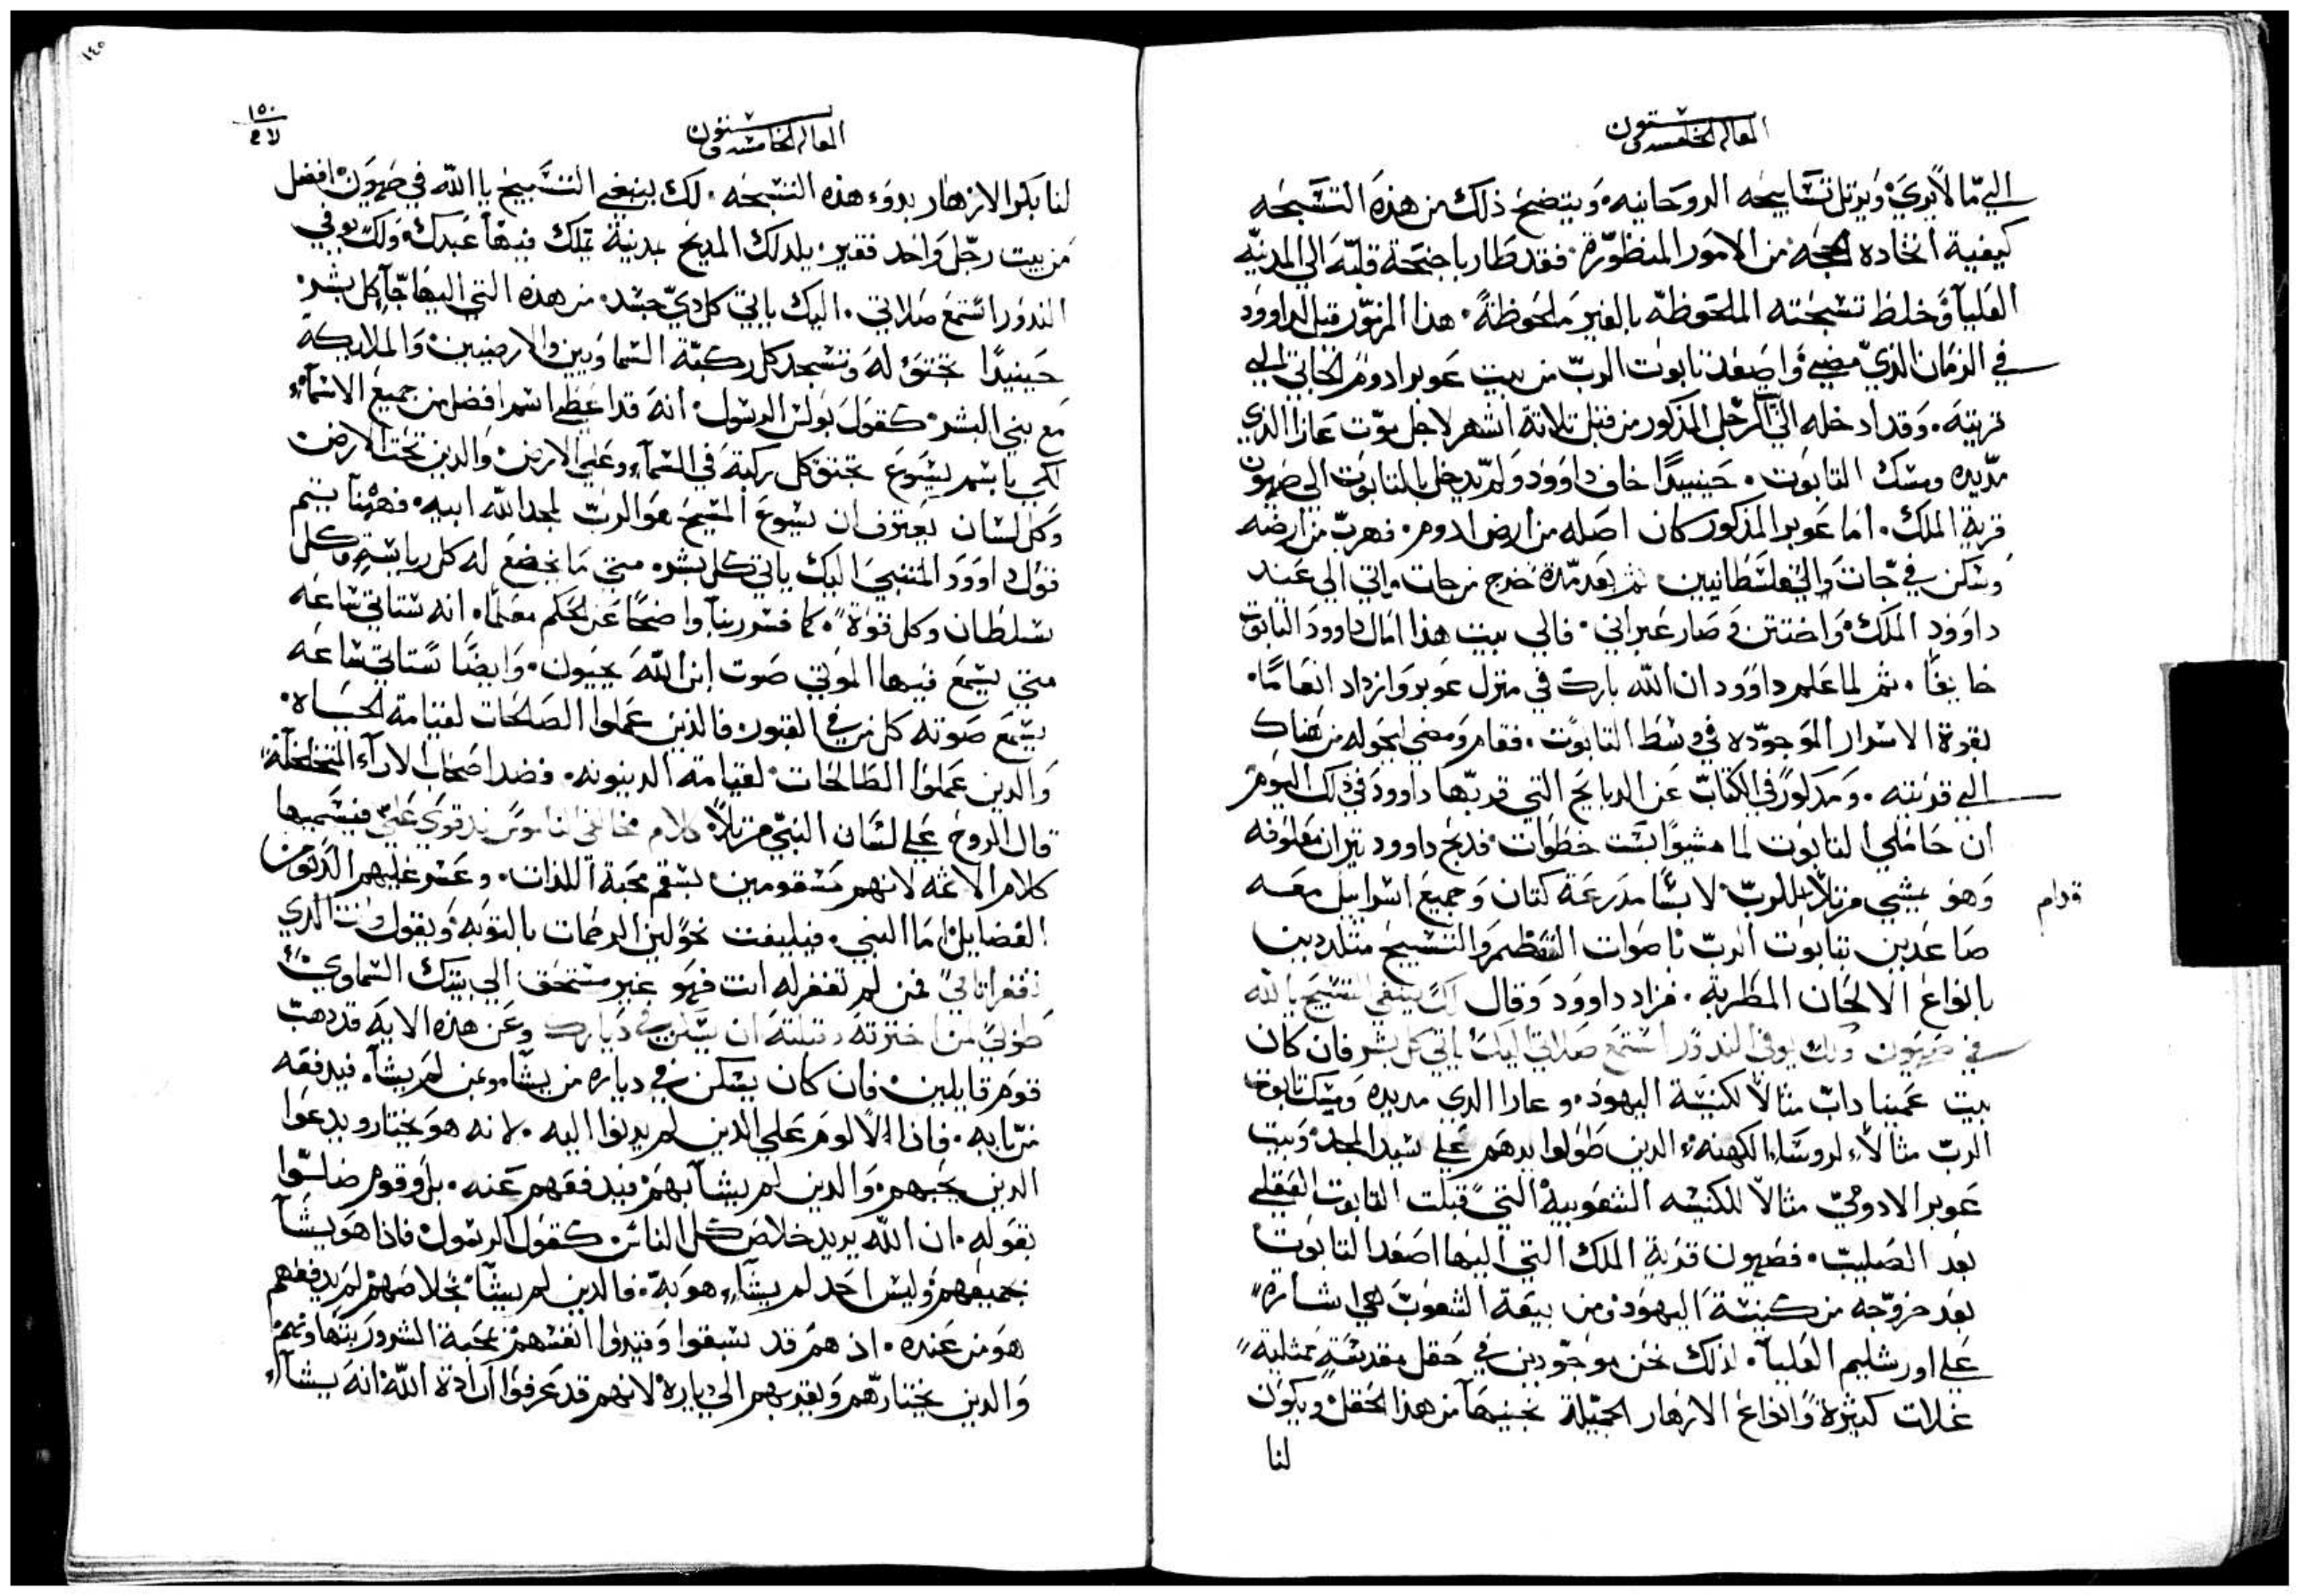 المقاله الخامسه وستون
الي ما لا يري، ويرتل تسابيحه الروحانيه، ويتضح ذلك من هذه التسبحه
كيفية اتخاده الحجه من الامور المنظورة، فقد طار باجنحة قلبه الي المدينه
العليا وخلط تسبحته الملحوظه بالغير ملحوظة، هذا المزمور قيل لداوود
في الزمان الذي مضي واصعد تابوت الرب من بيت عوبر ادوم الجاتي الي
قريته، وقد ادخله الي الرجل المذكور من قبل تلاتة اشهر لاجل موت عازا الذي
مد يده ومسك التابوت، حينيدًا خاف داوود ولم يدخل بالتابوت الي صهيون
قرية الملك، اما عوبر المذكور كان اصله من ارض ادوم، فهرب من ارضه
وسكن في جات والفلسطانيين ثم بعد مدة خرج من جات واتي الي عند
داوود الملك، واختتن وصار عبراني، فالي بيت هذا امال داوود التابوت
خايفًا، ثم لما علم داوود ان الله بارك في منزل عوبر وازداد انعامًا،
بقوة الاسرار الموجوده في وسط التابوت، فقام ومضي لحوله من هناك
الي قريته، ومذكور في الكتاب عن الدبايح التي قربها داوود في ذلك اليوم
ان حاملي التابوت لما مشيوا ست خطوات، فدبح داوود تيران معلوفه
وهو يمشي مرتلًا للرب لابسًا مدرعة كتان وجميع اسراييل معه
قدام
صاعدين بتابوت الرب باصوات التعظيم والتسبيح متلددين
بانواع الالحان المطربة، فزاد داوود وقال لك ينبغي التسبيح يا الله
في صهيون ولك يوفي الندور استمع صلاتي اليك ياتي كل بشر فان كان
بيت عمينا داب مثالًا لكنيسة اليهود، وعازا الدي مد يده ومسك تابوت
الرب مثالًا لروساء الكهنه الدين طولوا يدهم علي سيد المجد، وبيت
عوبر الادومي مثالًا للكنيسه الشعوبية التي قبلت التابوت العقلي
بعد الصليب، فصهيون قرية الملك التي اليها اصعد التابوت
بعد خروجه من كنيسة اليهود ومن بيعة الشعوب هي اشارة
علي اورشليم العليا، لذلك نحن موجودين في حقل مقدسة ممتلية
غلات كثيرة وانواع الازهار الجميلة نجنيها من هذا الحقل، ويكون
لنا
١٤٥
١٥٠
المقاله الخامسه وستون
لنا بكر الازهار بدوء هذه التسبحه، لك ينبغي التسبيح يا الله في صهيون افضل
من بيت رجل واحد فقير، يلد لك المديح بمدينة تملك فيها عبدك، ولك يوفي
الندور استمع صلاتي، اليك ياتي كل دي جسد، من هذه التي اليها جاء كل بشر
حينيدًا تجتو له وتسجد كل ركبة السماويين والارضيين والملايكة
مع بني البشر، كقول بولس الرسول، انه قد اعطي اسم افضل من جميع الاسماء
لكي باسم يسوع تجتو كل ركبة في السماء وعلي الارض والدين تحت الارض
وكل لسان يعترف ان يسوع المسيح هو الرب لمجد الله ابيه، فههنا يتم
قول داوود النبي اليك ياتي كل بشر، متي ما يخضع له كل رياسة وكل
سلطان وكل قوة، كما فسر ربنا واضحًا عن الحكم معلمًا، انه ستاتي ساعه
متي يسمع فيها الموتي صوت ابن الله يحييون، وايضًا ستاتي ساعه
يسمع صوته كل من في القبور، فالذين عملوا الصالحات لقيامة الحياه،
والدين عملوا الطالحات لقيامة الدينونه، فضد اصحاب الاراء المتخلخلة
قال الروح علي لسان النبي مرتلًا، كلام مخالفي الناموس قد قوي علي، فيسميها
كلام الاثمه لانهم مسقومين بسقم محبة اللذات، وعسر عليهم الدنو من
الفضايل، اما النبي، فيليفت نحو لين الرحمات بالتوبه ويقول وانت الدي
تغفر اتامي، فمن لم تغفر له انت فهو غير مستحق الي بيتك السماوي
طوبي لمن اخترته وقبلته ان يسكن في ديارك وعن هذه الايه قد دهب
قوم قايلين، فان كان يسكن في دياره من يشا، ومن لم يشا، فيدفعه
فادا لا لوم علي الدين لم يدنوا اليه، لانه هو يختار ويدعوا
الدين يحبهم، والدين لم يشا بهم فيدفعهم عنه، بل وقوم ضلوا
بقوله، ان الله يريد خلاص كل الناس كقول الرسول، فاذا هو يشا
بجميعهم وليس احد لم يشاء هو به، فالدين لم يشا بخلاصهم لم يدفعهم
هو من عنده، اذ هم قد سبقوا وقيدوا انفسهم بمحبة الشرور
والدين يختارهم ويقربهم الي دياره لانهم قد عرفوا ارادة الله انه يشاء